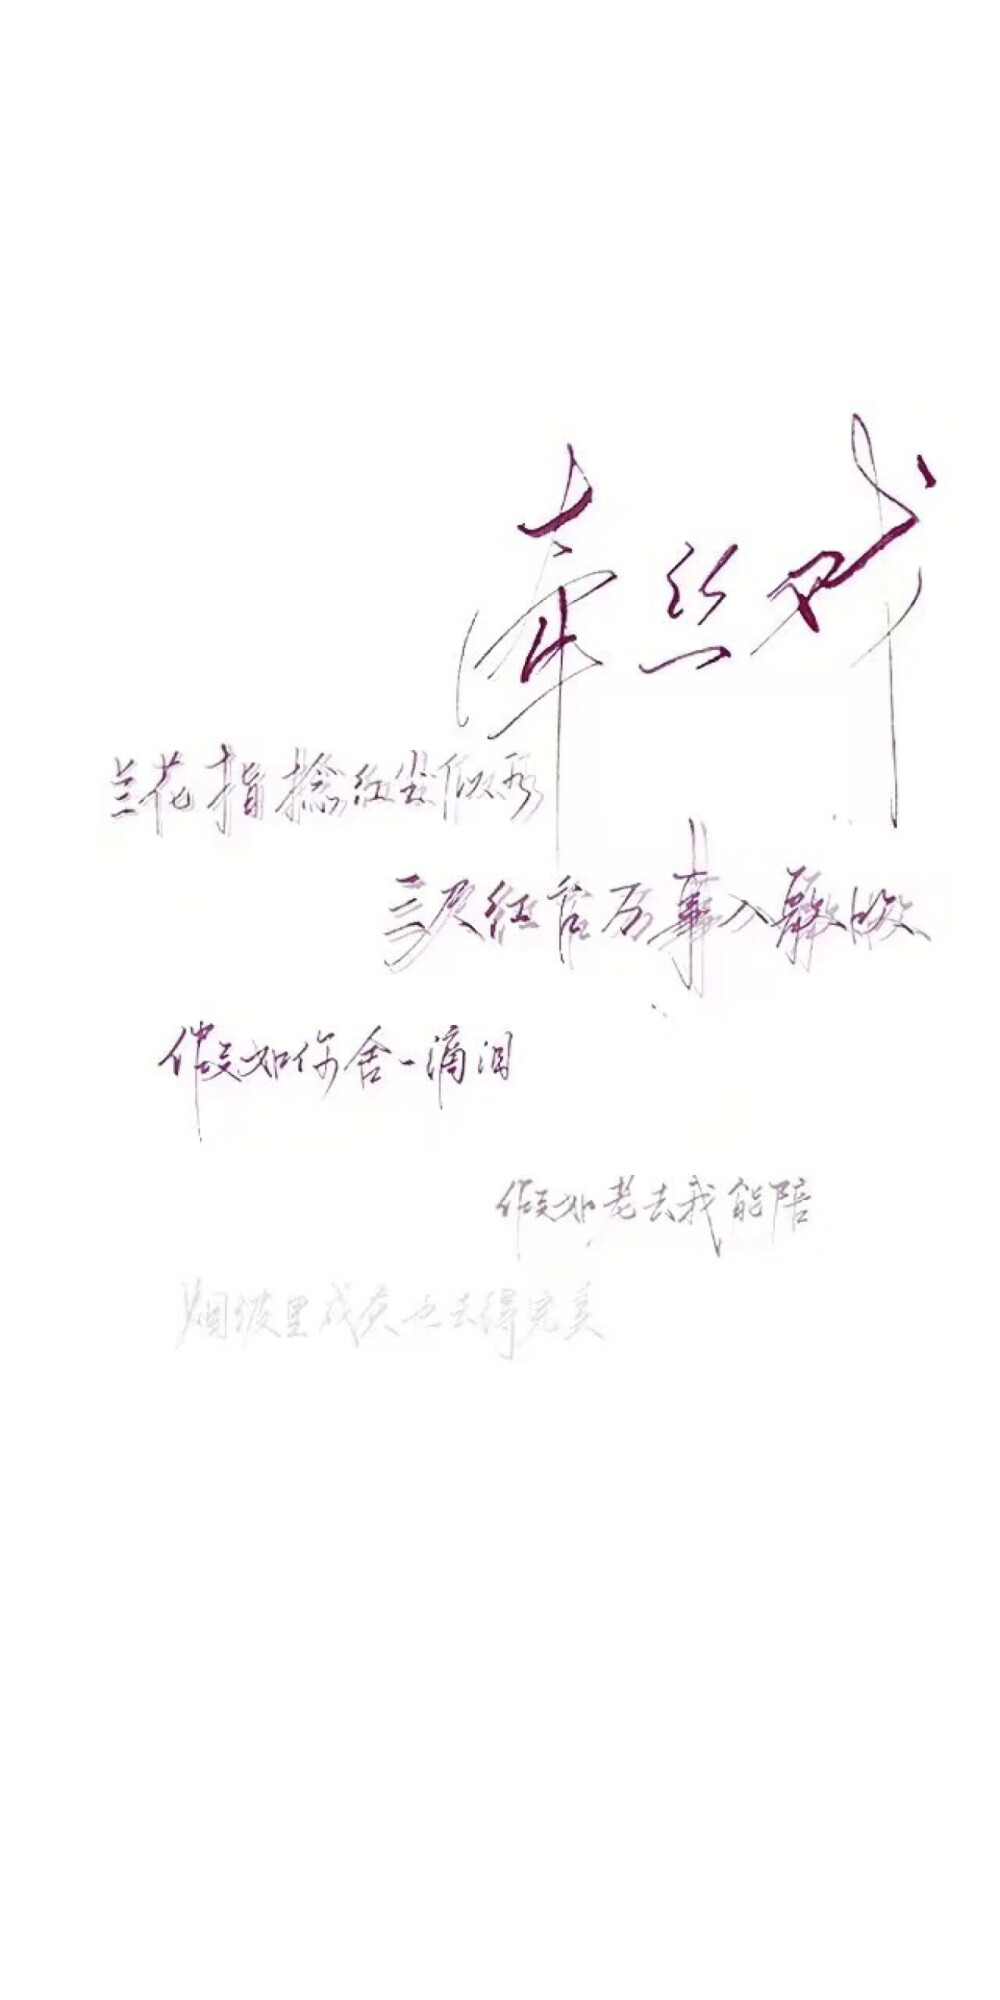 牵丝戏
兰花指捻红尘似水
三尺红台万事入歌吹
假如你舍一滴泪
假如老去我能陪
烟波里成灰也去得完美